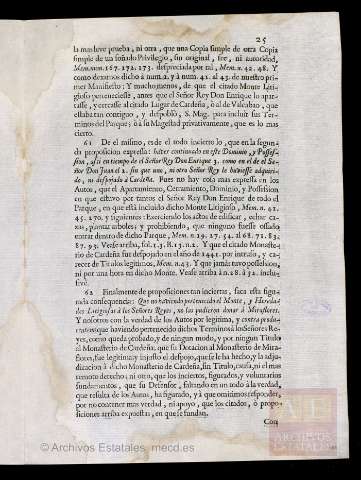 25
la mas leve prueba, ni otra, que una Copia simple de otra Copia
simple de un soñado Privilegio, sin original, fee, ni autoridad,
Mem. num. 167. 172. 173. despreciada por mi, Mem. n. 42. 48. Y
como dexamos dicho à num. 2. y à num. 41. al 43. de nuestro pri-
mer Manifiesto: Y mucho menos, de que el citado Monte Liti-
gioso perteneciesse, antes que el Señor Rey Don Enrique lo apar-
tasse, y cercasse al citado Lugar de Cardeña, ò al de Valcabao, que
estaban tan contiguo, y despoblò, S. Mag. para incluir sus Ter-
minos del Parque; ò à su Magestad privativamente, que es lo mas
cierto.
61 De el mismo, es de el todo incierto lo, que en la segun-
da proposicion expressa: haver continuado en este Dominio, y Posses-
sion, assi en tiempo de el Señor Rey Don Enrique 3. como en el de el Se-
ñor Don Juan el 2. sin que uno, ni otro Señor Rey le huviesse adquiri-
do, ni despojado à Cardeña. Pues no hay cosa mas expressa en los
Autos, que el Apartamiento, Cerramiento, Dominio, y Possession
en que estuvo por tantos el Señor Rey Don Enrique de todo el
Parque, en que está incluido dicho Monte Litigioso, Mem. n. 41.
45. 270. y siguientes: Exerciendo los actos de edificar, echar ca-
zas, plantar arboles, y prohibiendo, que ninguno fuesse ossado
entrar dentro de dicho Parque, Mem. n. 29. 27. 54. al 68. 72. 83.
87. 95. Vease arriba, fol. 13. B. 13. n. 2. Y que el citado Monaste-
rio de Cardeña fue despojado en el año de 1441. por intruso, y ca-
recer de Titulos legitimos, Mem. n. 43. Y que jamás tuvo possession,
ni por una hora en dicho Monte. Vease arriba à n. 28. à 32. inclu-
sivè.
62 Finalmente de proposiciones tan inciertas, saca esta figu-
rada consequencia: Que no haviendo pertenecido el Monte, y Hereda-
des Litigiosas à los Señores Reyes, no las pudieron donar à Miraflores.
Y nosotros con la verdad de los Autos por legitima, y contraprodu-
centem: que haviendo pertenecido dichos Terminos à los Señores Re-
yes, como queda probado, y de ningun modo, y por ningun Titulo
al Monasterio de Cardeña, que su Dotacion al Monasterio de Mira-
flores, fue legitima, y injusto el despojo, que se le ha hecho, y la adju-
dicacion à dicho Monasterio de Cardeña, sin Titulo, causa, ni el mas
remoto derecho; ni otro, que los inciertos, figurados, y voluntarios
fundamentos, que su Defensor, faltando en un todo à la verdad,
que resulta de los Autos, ha figurado, y à que omitimos responder,
por no contener mas verdad, ni apoyo, que los citados, ò propo-
siciones arriba expuestas, en que se fundan.
Con
© Archivos Estatales, mecd.es
ARCHIVOS
ESTATALES